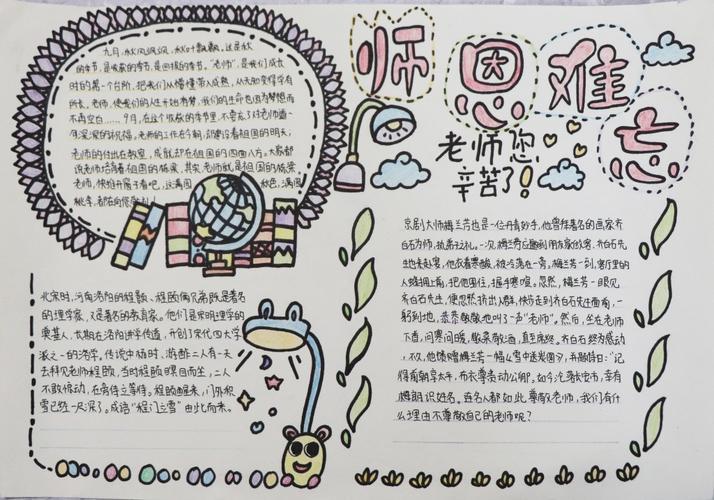 师恩难忘
老师您
辛苦了!
九月,秋风飒飒,秋叶飘飘。这是秋
的季节,是收获的季节,是回报的季节。"老师",是我们成长
时的第一个台阶,把我们从懵懂带入成熟,从无知变得学有
所长。老师,使我们的人生开始有梦,我们的生命也因为梦想而
不再空白……9月,在这个收获的季节里,不要忘了对老师道一
声深深的祝福。老师的工作在今朝,却建设着祖国的明天;
老师的付出在教室,成就却在祖国的四面八方。大家都
说老师培育着祖国的栋梁,其实,老师就是祖国的栋梁。
老师,快推开窗子看吧,这满园
秋色,满园
桃李,都在向您敬礼!
北宋时,河南洛阳的程颢、程颐俩兄弟既是著名
的理学家,又是著名的教育家。他们是宋明理学的
奠基人,长期在洛阳讲学传道,开创了宋代四大学
派之一的洛学。传说中杨时、游酢二人有一天
去拜见老师程颐,当时程颐瞑目而坐,二人
不敢惊动,在旁侍立等待。程颐醒来,门外积
雪已经一尺深了。成语"程门立雪"由此而来。
京剧大师梅兰芳也是一位丹青妙手,他曾拜著名的画家齐
白石为师,执弟子礼。一次,梅兰芳应邀到朋友家做客,齐白石先
生也来赴宴,他衣着寒酸,被冷落在一旁,梅兰芳一到,客厅里的
人蜂拥上前,把他围住,握手寒暄。忽然,梅兰芳一眼见
齐白石先生,便忽然挤出人群,快步走到齐白石先生面前,一
躬到地,恭恭敬敬地叫了一声"老师"。然后,坐在老师
下首,问寒问暖,敬茶敬酒,直至席终。齐白石颇为感动
,不久,他馈赠梅兰芳一幅《雪中送炭图》,并题诗曰:"记
得前朝享太平,布衣尊贵动公卿。如今沦落长安市,幸有
梅郎识姓名。连名人都如此尊敬老师,我们有什
么理由不尊敬自己的老师呢?